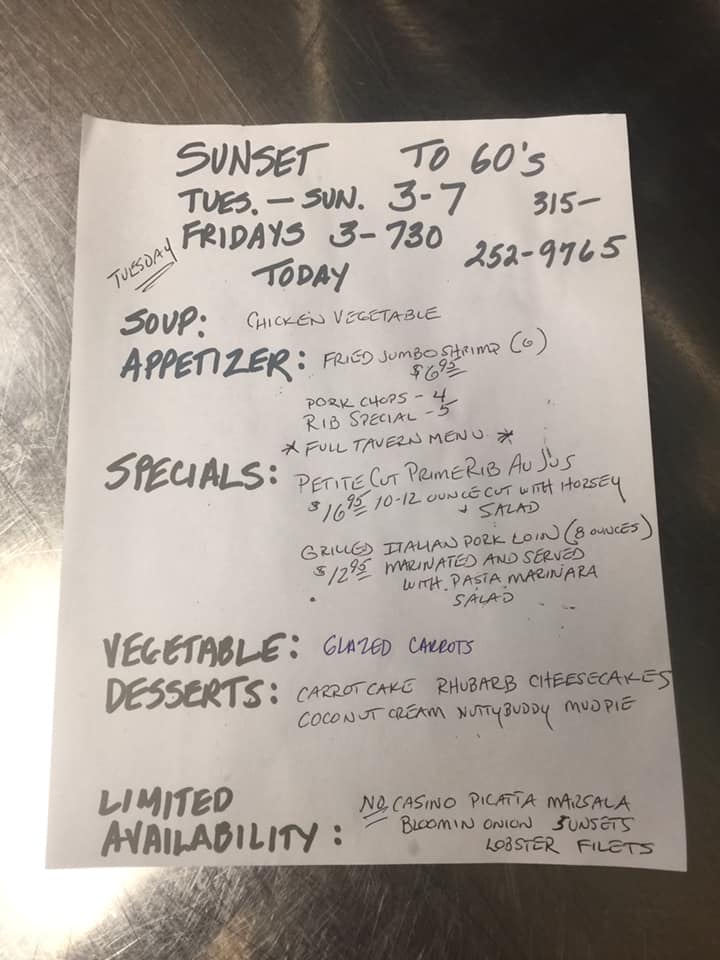 SUNSET TO 60'S
TUES. - SUN. 3-7 315-
FRIDAYS 3-730 252-9765
TUESDAY
TODAY
SOUP: CHICKEN VEGETABLE
APPETIZER: FRIED JUMBO SHRIMP (6)
$6.95
PORK CHOPS - 4
RIB SPECIAL - 5
* FULL TAVERN MENU *
SPECIALS: PETITE CUT PRIME RIB AU JUS
$16.95 10-12 OUNCE CUT WITH HORSEY
+ SALAD
GRILLED ITALIAN PORK LOIN (8 OUNCES)
$12.95 MARINATED AND SERVED
WITH PASTA MARINARA
SALAD
VEGETABLE: GLAZED CARROTS
DESSERTS: CARROT CAKE RHUBARB CHEESECAKES
COCONUT CREAM NUTTYBUDDY MUDPIE
LIMITED
AVAILABILITY: NO CASINO PICATTA MARSALA
BLOOMIN ONION SUNSETS
LOBSTER FILETS